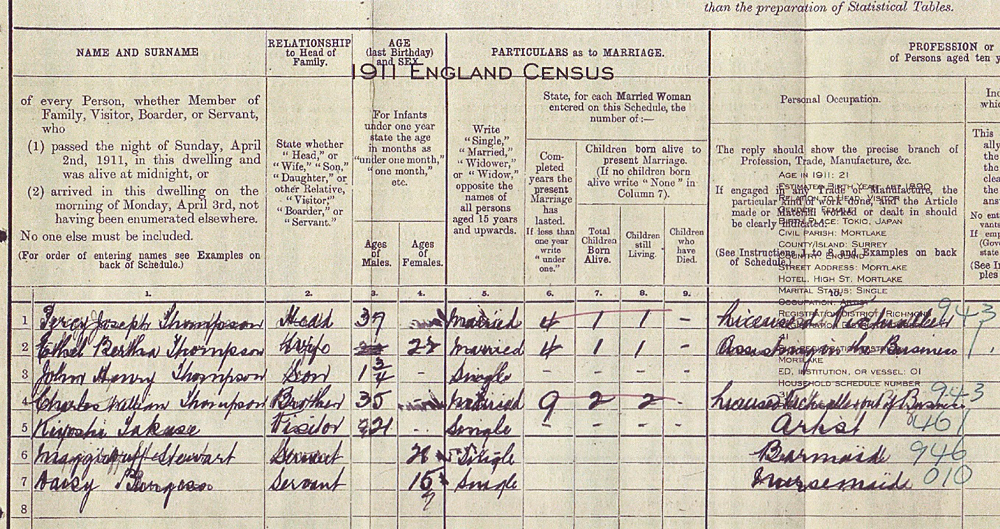 than the preparation of Statistical Tables.
NAME AND SURNAME
RELATIONSHIP
to Head of
Family.
AGE
(last Birthday)
and SEX.
PARTICULARS as to MARRIAGE.
PROFESSION or
of Persons aged ten y
1911 ENGLAND CENSUS
of every Person, whether Member of
Family, Visitor, Boarder, or Servant,
who
(1) passed the night of Sunday, April
2nd, 1911, in this dwelling and
was alive at midnight, or
(2) arrived in this dwelling on the
morning of Monday, April 3rd, not
having been enumerated elsewhere.
No one else must be included.
(For order of entering names see Examples on
back of Schedule.)
State whether
"Head," or
"Wife," "Son,"
"Daughter," or
other Relative,
"Visitor,"
"Boarder," or
"Servant."
For Infants
under one year
state the age
in months as
"under one month,"
"one month,"
etc.
Ages
of
Males.
Ages
of
Females.
Write
"Single,"
"Married,"
"Widower,"
or "Widow,"
opposite the
names of
all persons
aged 15 years
and upwards.
State, for each Married Woman
entered on this Schedule, the
number of:—
Com-
pleted
years the
present
Marriage
has
lasted.
If less than
one year
write
"under
one."
Children born alive to
present Marriage.
(If no children born
alive write "None" in
Column 7).
Total
Children
Born
Alive.
Children
still
Living.
Children
who
have
Died.
Personal Occupation.
The reply should show the precise branch of
Profession, Trade, Manufacture, &c.
If engaged in any Trade or Manufacture, the
particular kind of work done, and the Article
made or Material worked or dealt in should
be clearly indicated.
(See Instructions 1 to 8 and Examples on back
of Schedule.)
Age in 1911: 21
Estimated Birth Year: abt 1890
Relation to Head: Visitor
Gender: Female
Birth Place: Tokio, Japan
Civil Parish: Mortlake
County/Island: Surrey
Country: England
Street Address: Mortlake
Hotel, High St, Mortlake
Marital Status: Single
Occupation: Artist
Registration District: Richmond
Mortlake
ED, institution, or vessel: 01
Household Schedule Number
This
1. 2. 3. 4. 5. 6. 7. 8. 9. 10.
1 Percy Joseph Thompson Head 37 Married 4 1 1 - Licensed Victualler 943
2 Ethel Bertha Thompson Wife - Married 4 1 1 - Assisting in the Business
3 John Henry Thompson Son 1 3/4 - Single - - - -
4 Charles William Thompson Brother 35 Married 9 2 2 - Licensed Victualler out of Business 943
5 Kiyoshi Takase Visitor 21 - Single - - - - Artist
6 Stewart Servant Single Barmaid 946
7 Daisy Burgess Servant 15 Single Nursemaid 010
8